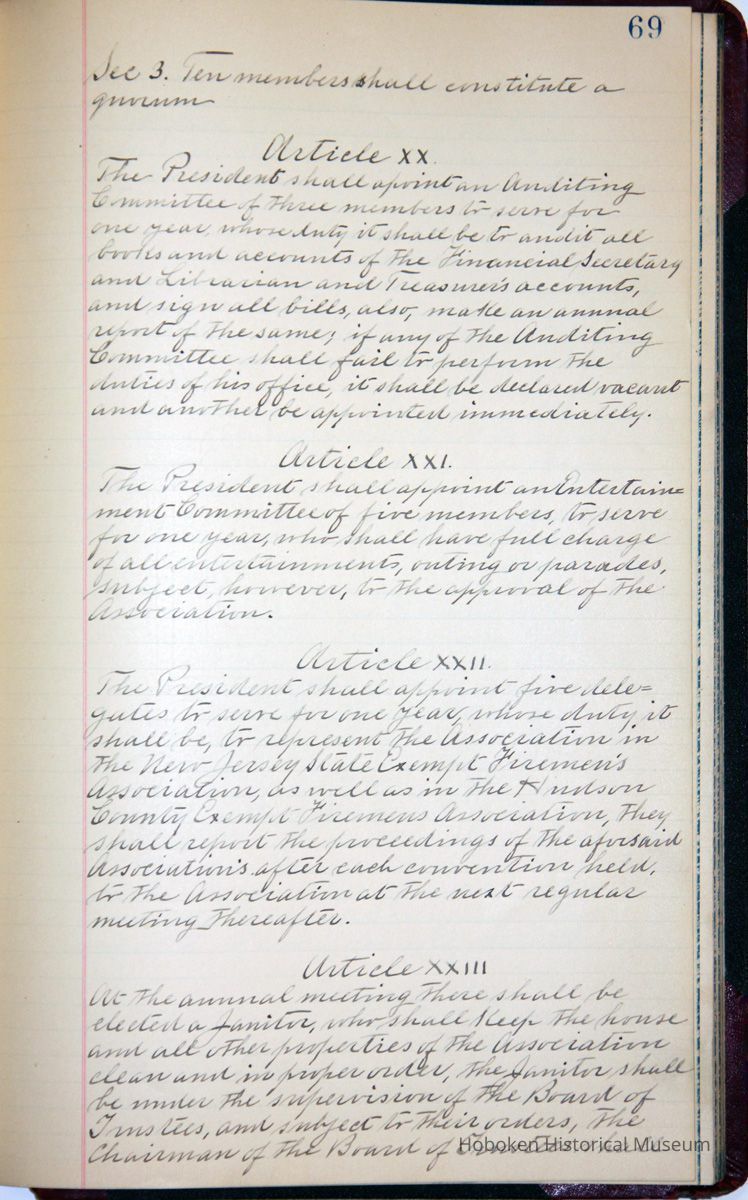 69
Sec 3. Ten members shall constitute a
quorum
Article XX.
The President shall apoint an Auditing
Committee of three members to serve for
one year, whose duty it shall be to audit all
books and accounts of the Financial Secretary
and Librarian and Treasurer's accounts,
and sign all bills, also, make an annual
report of the same; if any of the Auditing
Committee shall fail to perform the
duties of his office, it shall be declared vacant
and another be appointed immediately.
Article XXI.
The President shall appoint an Entertain=
ment Committee of five members, to serve
for one year, who shall have full charge
of all entertainments, outing or parades,
subject, however, to the approval of the
Association.
Article XXII.
The President shall appoint five dele=
gates to serve for one year, whose duty it
shall be, to represent the Association in
the New Jersey State Exempt Firemen's
Association, as well as in the Hudson
County Exempt Firemens Association, they
shall report the proceedings of the aforsaid
Association's after each convention held,
to the Association at the next regular
meeting thereafter.
Article XXIII
At the annual meeting there shall be
elected a Janitor, who shall keep the house
and all other properties of the Association
clean and in proper order, the Janitor shall
be under the supervision of the Board of
Trustees, and subject to their orders, the
Chairman of the Board of
Hoboken Historical Museum